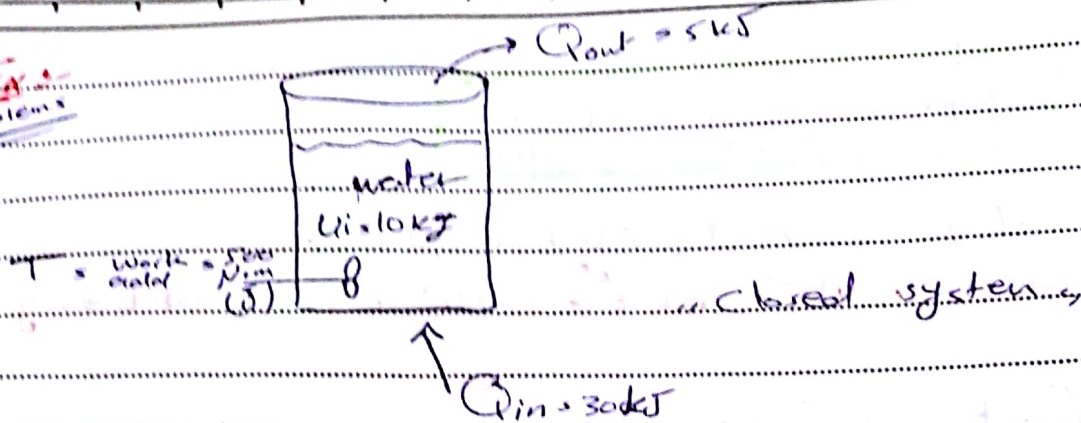 Qout = 5kJ
water
Ui = 10 kJ
T = Work = 500
N.m
(J)
"closed system"
Qin = 30kJ